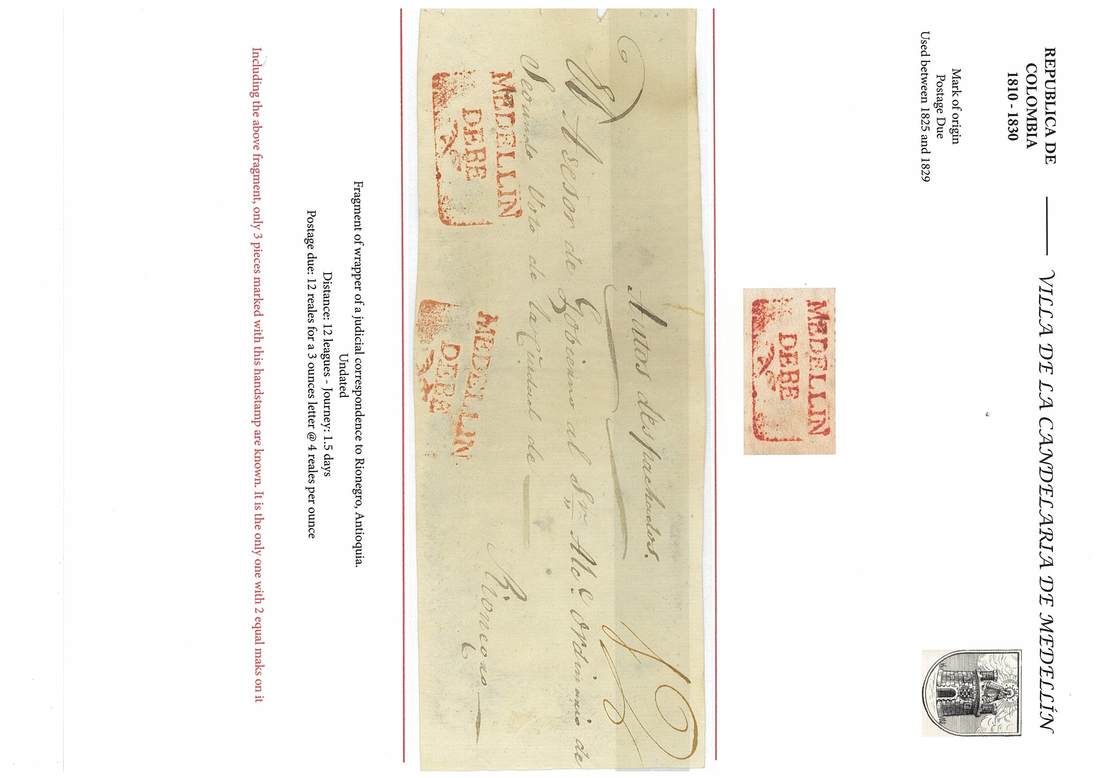 REPUBLICA DE
COLOMBIA
1810 - 1830
VILLA DE LA CANDELARIA DE MEDELLÍN
Mark of origin
Postage Due
Used between 1825 and 1829
MEDELLIN
DEBE
Autos despachados.
El Asesor de Gobierno al Sr. Alc.e Ordinario de
Segundo Voto de la Ciudad de
Rionegro
MEDELLIN
DEBE
MEDELLIN
DEBE
Fragment of wrapper of a judicial correspondence to Rionegro, Antioquia.
Undated
Distance: 12 leagues - Journey: 1.5 days
Postage due: 12 reales for a 3 ounces letter @ 4 reales per ounce
Including the above fragment, only 3 pieces marked with this handstamp are known. It is the only one with 2 equal maks on it